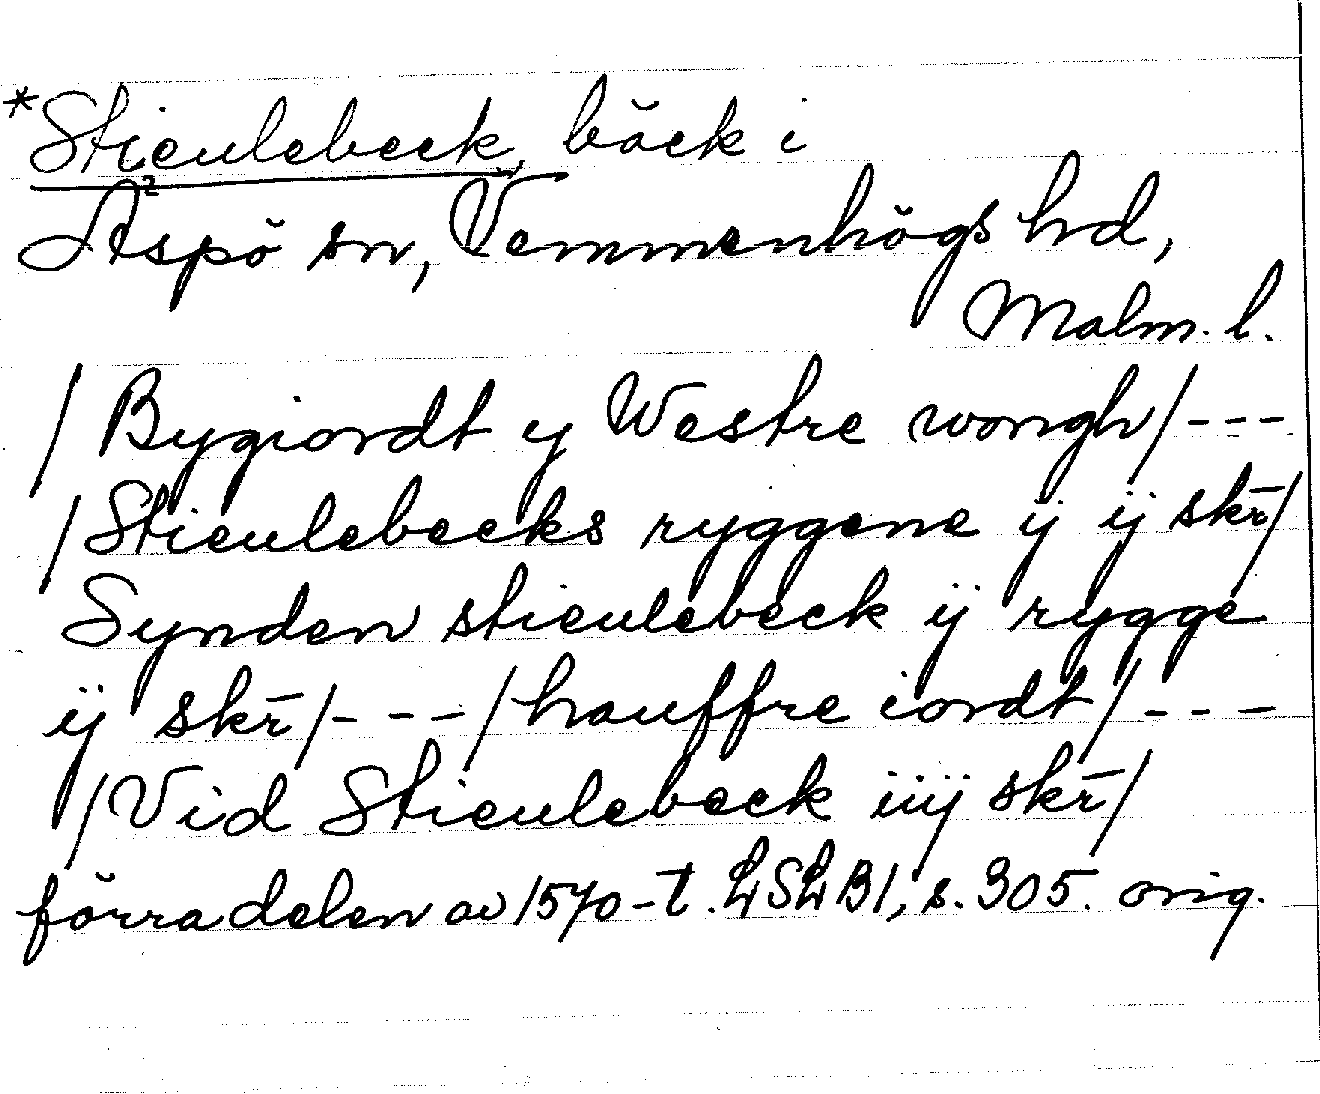 *Stieulebeck, bäck i
Äspö sn, Vemmenhögs hd,
Malm. l.
/Bygiordt y Westre wongh/---
/Stieulebecks ryggene ÿ ÿ skr̄/
Synden stieulebeck ÿ rygge
ÿ skr̄/---/hauffre iordt/---
/Vid Stieulebeck iiÿ skr̄/
förra delen av 1570-t. LSLB1, s. 305. orig.